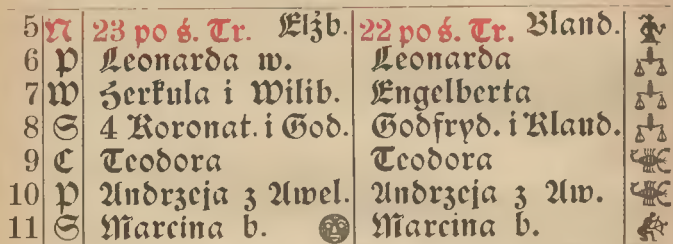 5 N 23 po ś. Tr. Elżb. 22 po ś. Tr. Bland.
6 P Leonarda w. Leonarda
7 W Herkula i Wilib. Engelberta
8 S 4 Koronat. i God. Godfryd. i Klaud.
9 C Teodora Teodora
10 P Andrzeja z Awel. Andrzeja z Aw.
11 S Marcina b. Marcina b.